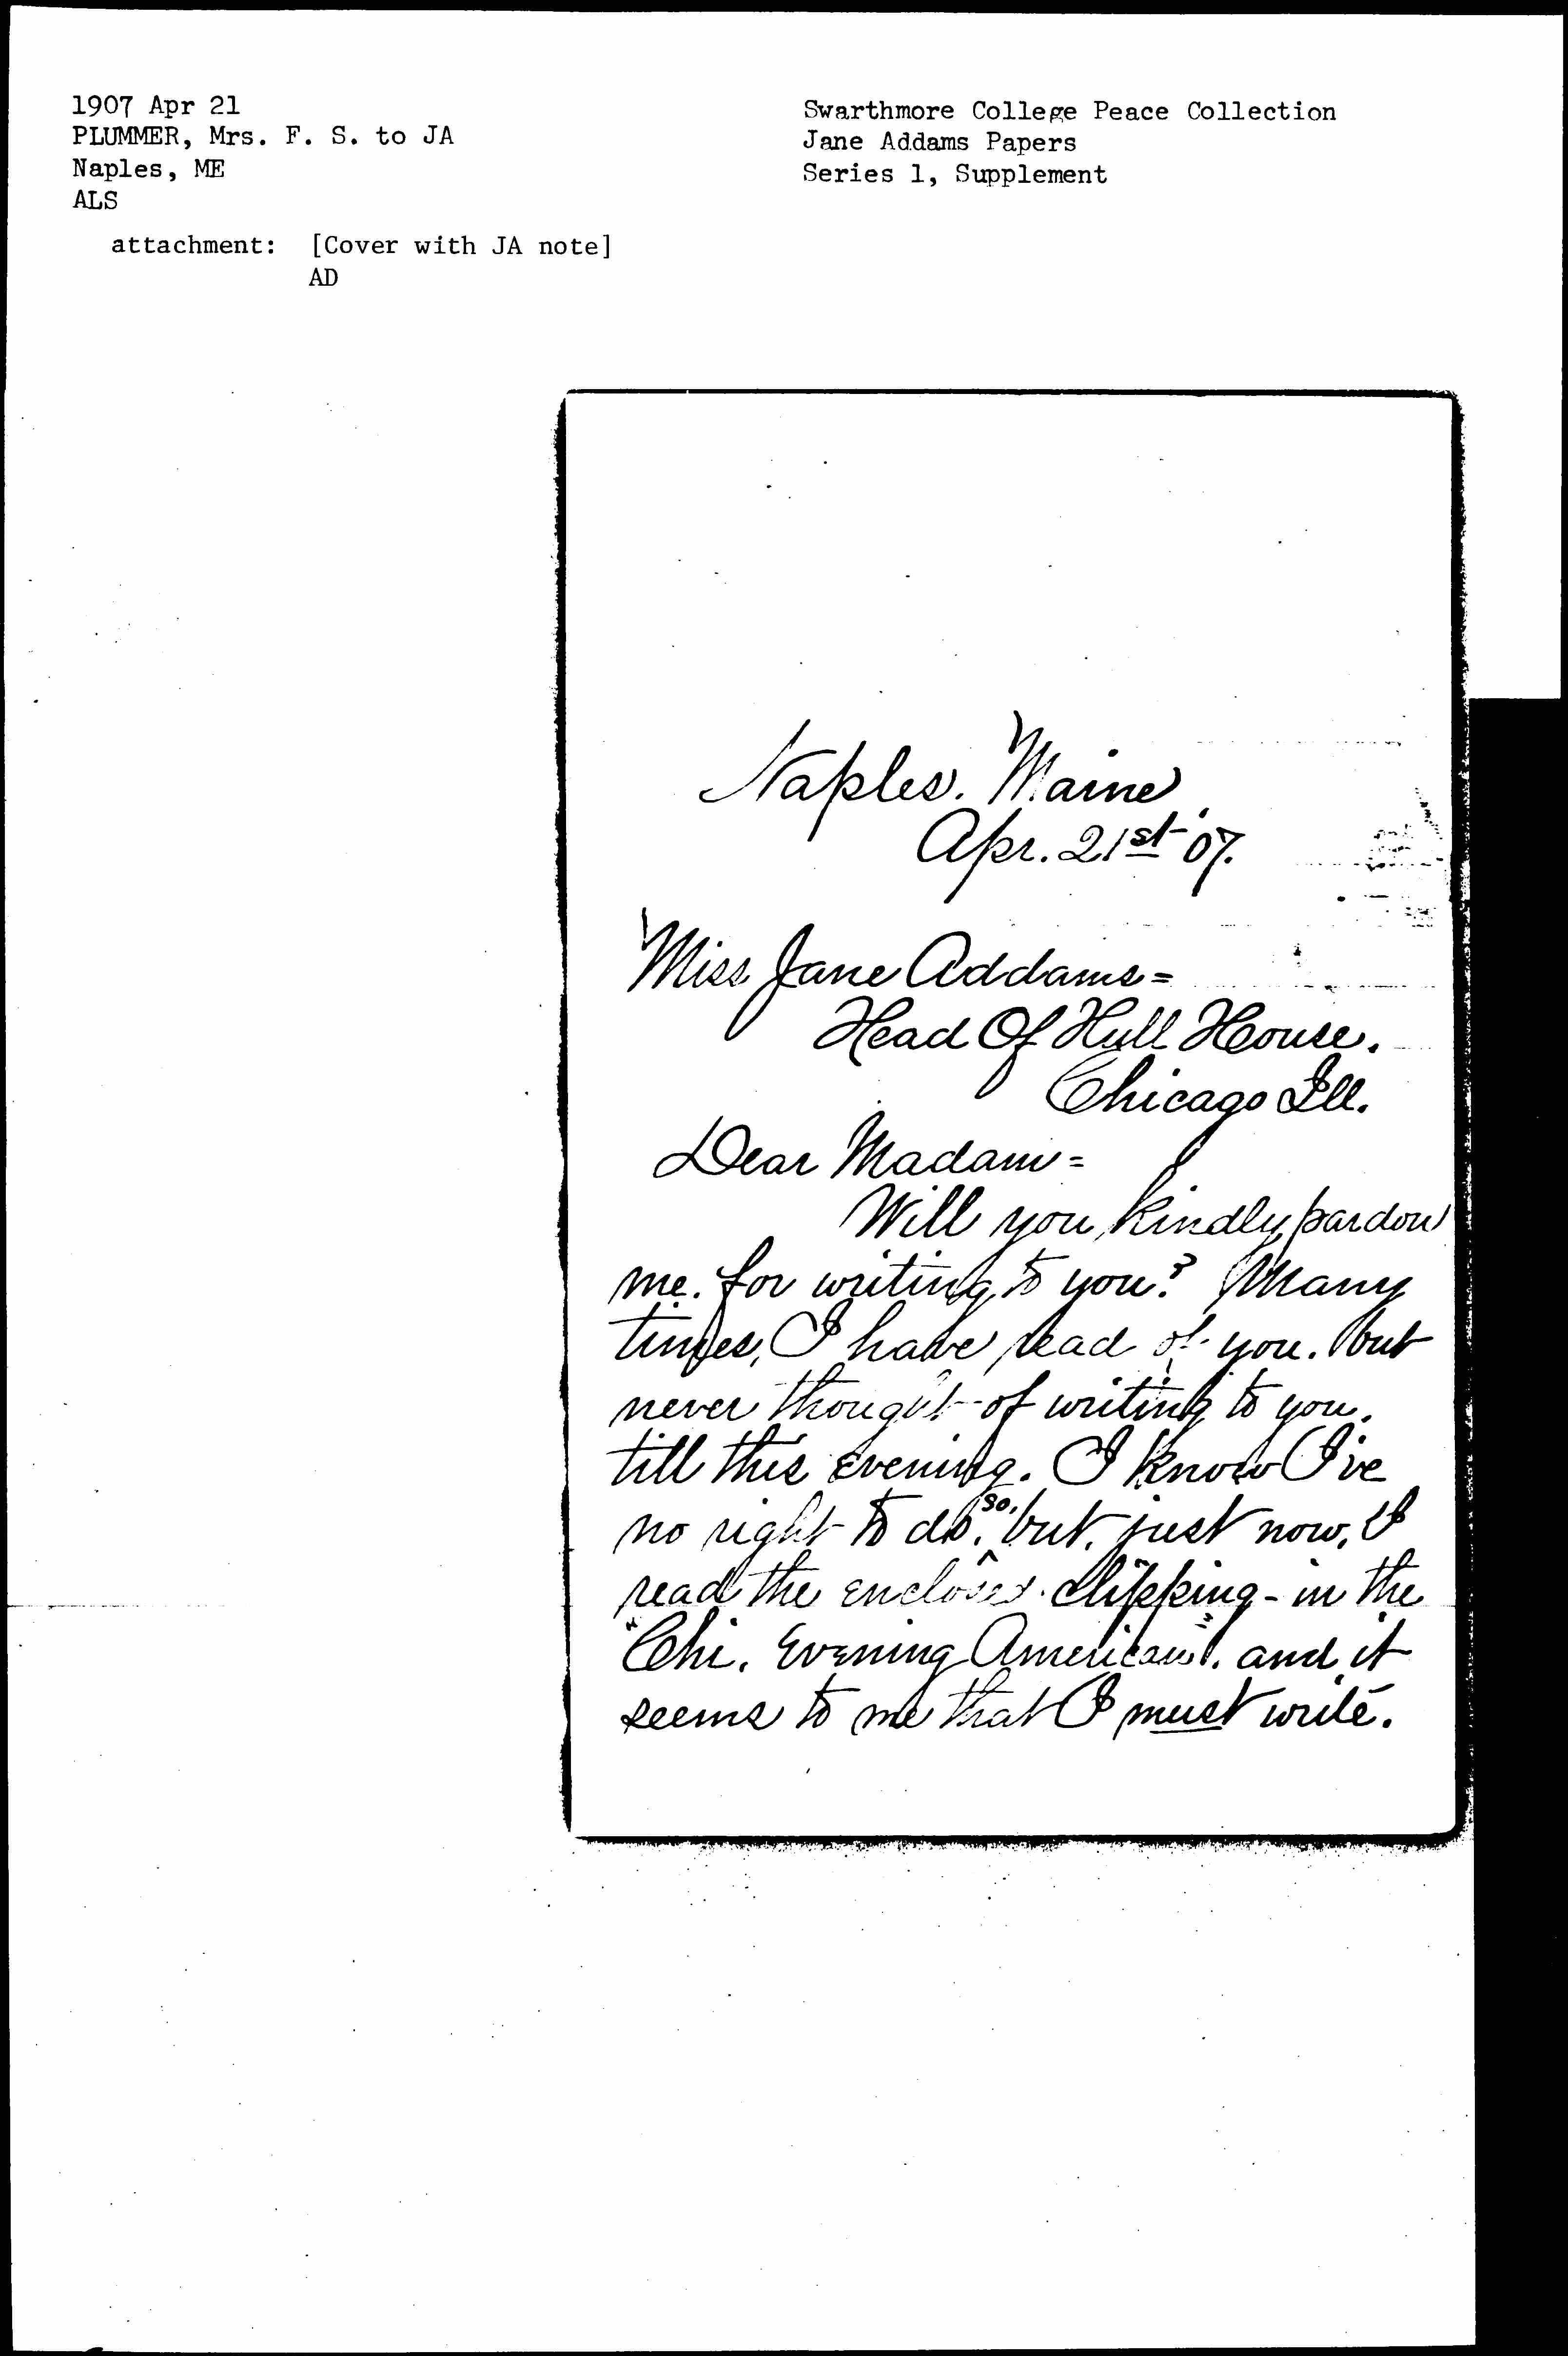 1907 Apr 21
PLUMMER, Mrs. F. S. to JA
Naples, ME
ALS
attachment: [Cover with JA note]
AD
Swarthmore College Peace Collection
Jane Addams Papers
Series 1, Supplement
Naples. Maine.
Apr. 21st '07.
Miss Jane Addams=
Head Of Hull House.
Chicago Ill.
Dear Madam=
Will you, kindly, pardon
me. for writing, to you? Many
times, I have, read of you. but
never thought of writing to you.
till this evening. I know I've
no right to do so, but, just now, I
read the enclosed clipping - in the
"Chi. Evening American". and it
seems to me that I must write.